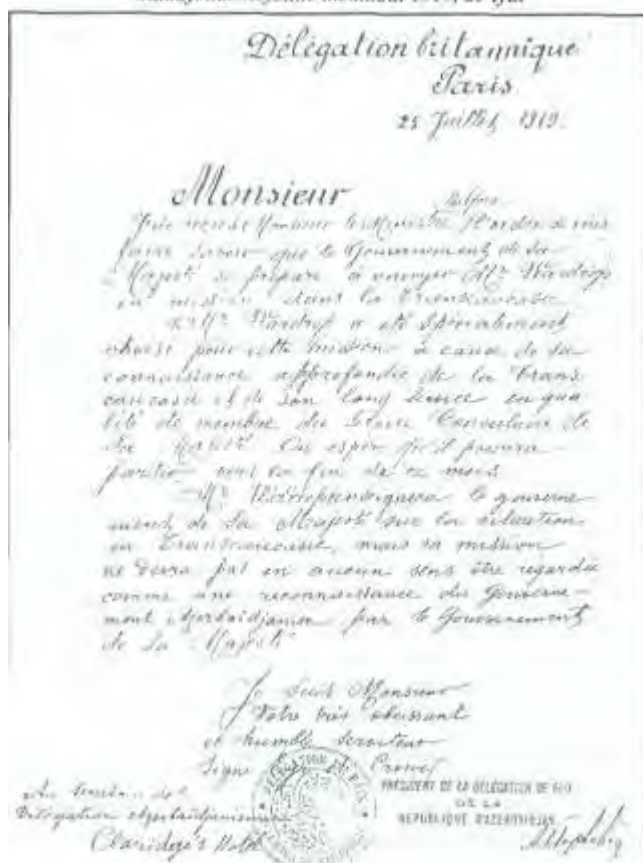 Délégation britannique
Paris
25 Juillet 1919.
Monsieur
Balfour
Monsieur le Ministre l'ordre de vous
faire savoir que le Gouvernement de Sa
Majesté se prépare à envoyer Mr. Wardrop
en mission dans la Transcaucasie
Mr. Wardrop a été spécialement
choisi pour cette mission à cause de sa
connaissance approfondie de la Trans
caucasie et de son long service en qua
lité de membre du Service Consulaire de
Sa Majesté. On espère qu'il pourra
partir vers la fin de ce mois
Mr. le gouverne
ment de Sa Majesté sur la situation
en Transcaucasie, mais sa mission
ne devra pas en aucun sens être regardée
comme une reconnaissance du Gouverne-
ment Azerbaïdjanien par le Gouvernement
de Sa Majesté
Je suis Monsieur
Votre très obéissant
et humble serviteur
Signé Crowe
PRÉSIDENT DE LA DÉLÉGATION DE
DE LA
RÉPUBLIQUE D'AZERBAIDJAN
Délégation Azerbaïdjanienne
Claridge's Hotel